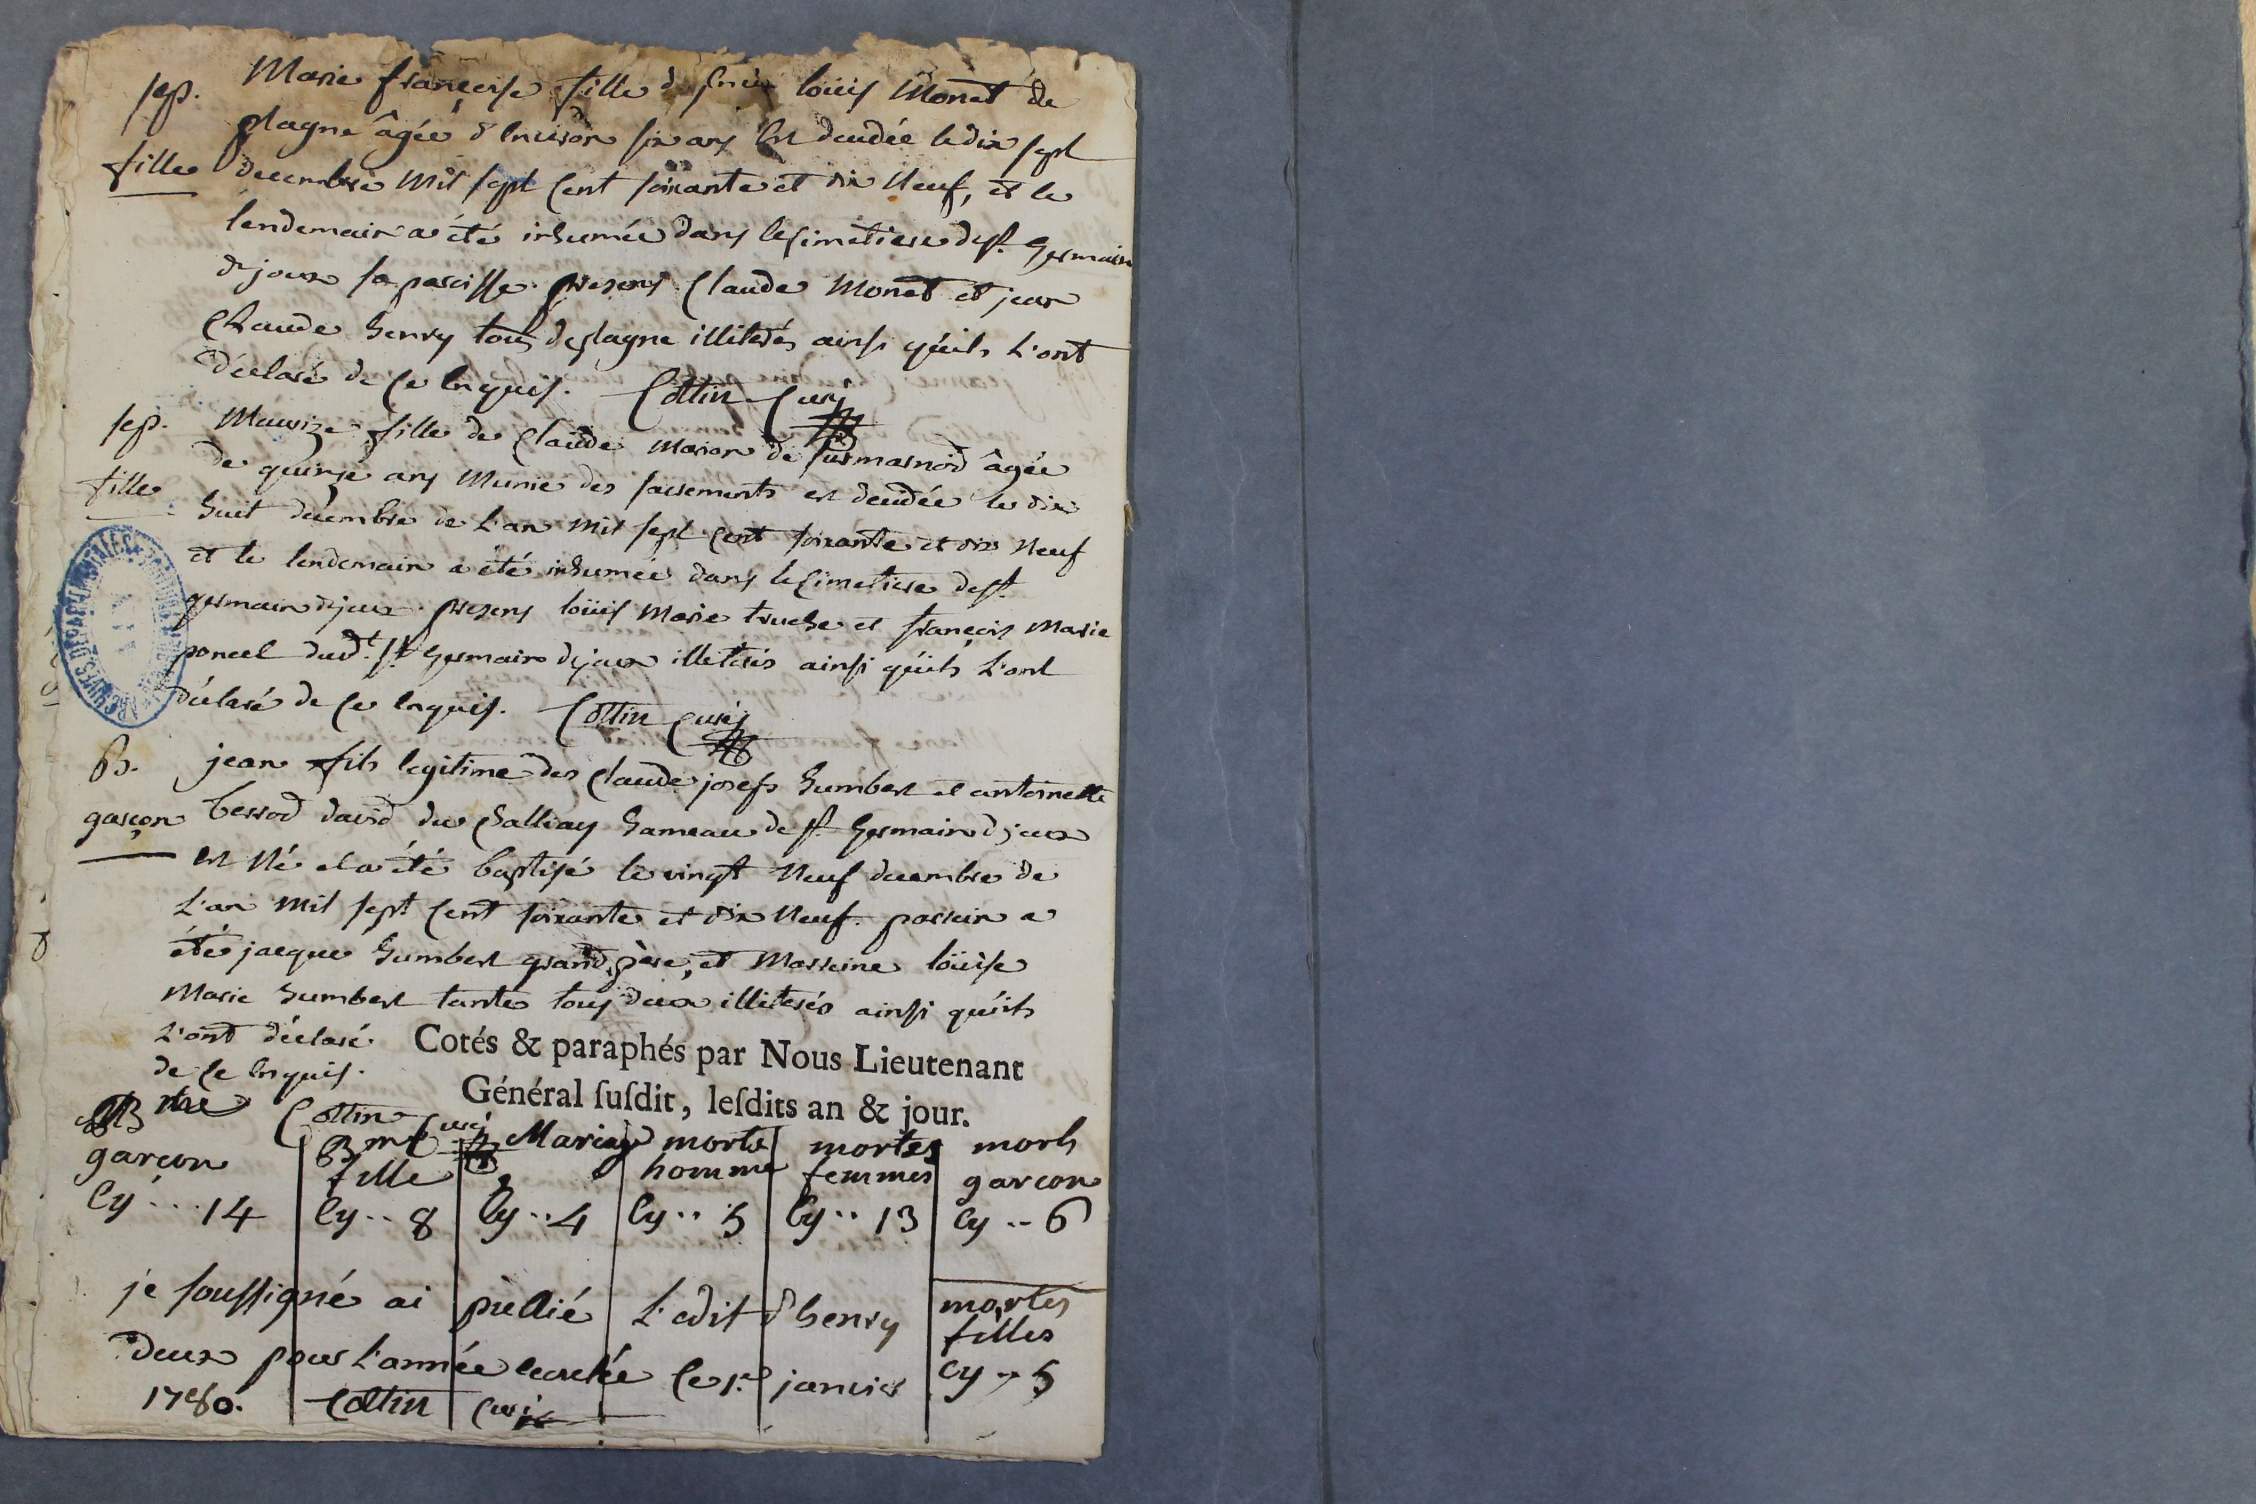 sep. Marie françoise fille de louis Monet de
plagne âgée d'environ six ans est decedée le dix sept
fille decembre mil sept cent soixante et dix neuf, et le
lendemain a été inhumée dans le cimetiere de st. Germain
de joux sa paroisse. presens Claude Monet et jean
Claude henry tous de plagne illiterés ainsi qu'ils l'ont
déclaré de ce enquis. Cottin curé
sep. Maurize fille de Claude marion de surmarnod âgée
de quinze ans munie des sacrements est decedée le dix
fille huit decembre de l'an mil sept cent soixante et dix neuf
et le lendemain a été inhumée dans le cimetiere de st.
germain de joux. presens loüis marie truche et françois marie
poncet dudt. st. Germain de joux illiterés ainsi qu'ils l'ont
déclaré de ce enquis. Cottin curé
B. jean fils legitime des Claude joseph humbert et antoinette
garçon bessod david du Challiay hameau de st. Germain de joux
est né et a été baptisé le vingt neuf decembre de
l'an mil sept cent soixante et dix neuf. parrein a
été jacque humbert grand père, et marreine loüise
marie humbert tante tous deux illiterés ainsi qu'ils
l'ont déclaré
de ce enquis.
Cottin curé
Cotés & paraphés par Nous Lieutenant
Général suſdit, leſdits an & jour.
Bme garcon cy ... 14
Bme fille cy .. 8
Mariage cy .. 4
morts homme cy .. 5
mortes femmes cy .. 13
morts garcon cy .. 6
mortes filles cy .. 5
je soussigné ai publié l'edit d'henry
deux pour l'année ce 1er janvier
1780. Cottin curé
ARCHIVES DEPARTEMENTALES